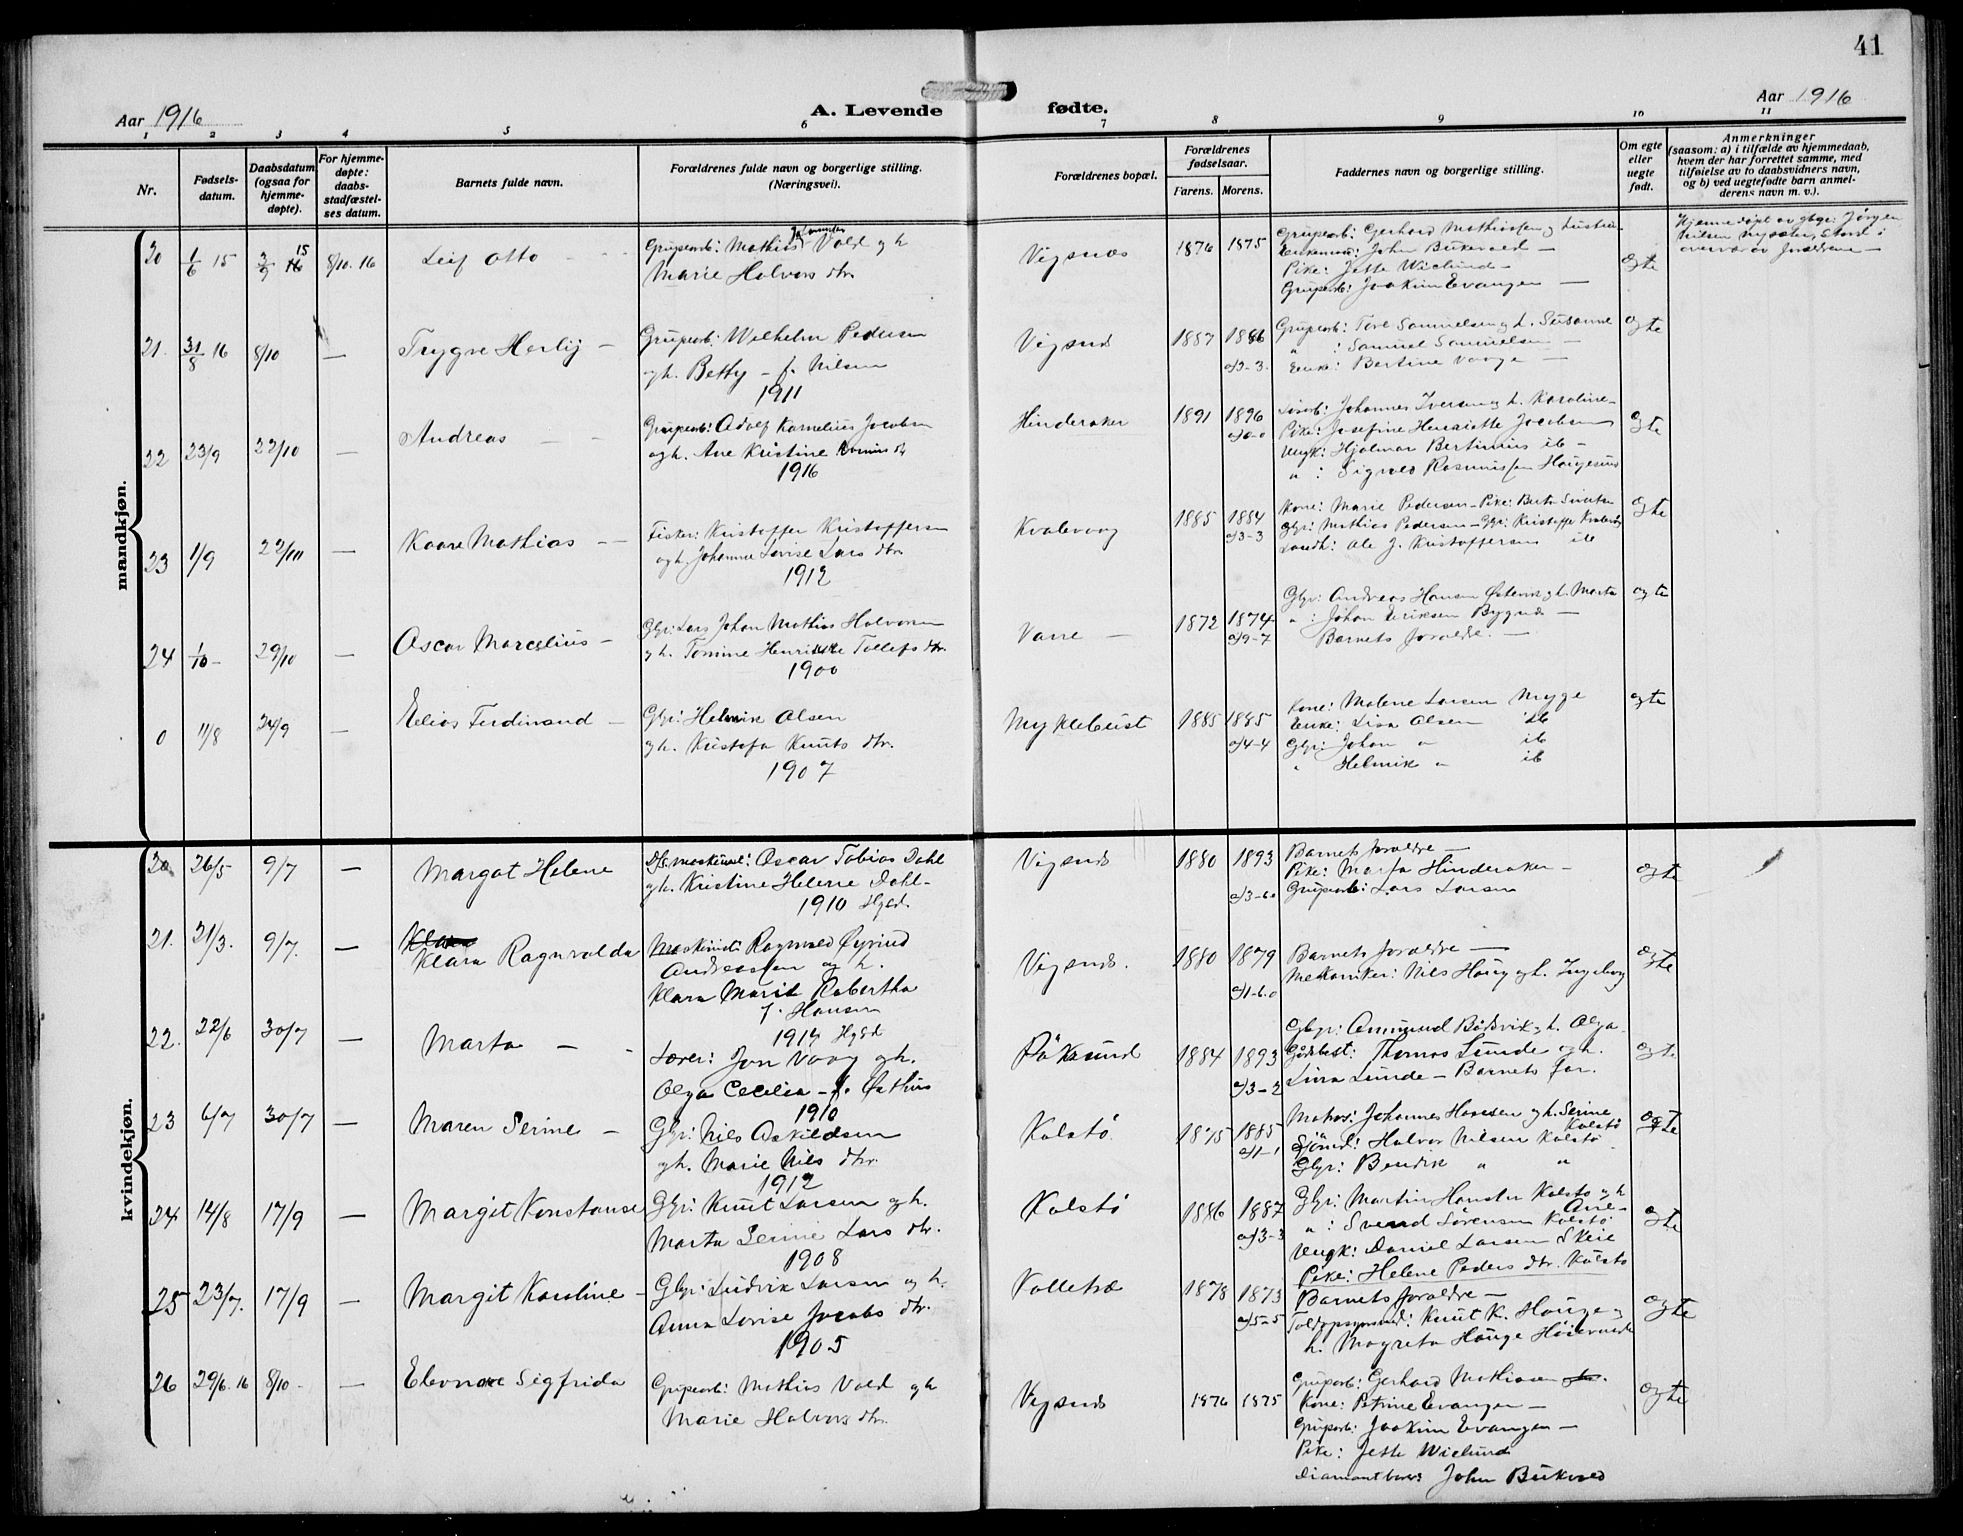 41
Aar 1916
A. Levende fødte.
Aar 1916
1 2 3 4 5 6 7 8 9 10 11
Nr.
Fødsels-
datum.
Daabsdatum
(ogsaa for
hjemme-
døpte).
For hjemme-
døpte:
daabs-
stadfæstel-
ses datum.
Barnets fulde navn.
Forældrenes fulde navn og borgerlige stilling.
(Næringsvei).
Forældrenes bopæl.
Forældrenes
fødselsaar.
Farens. Morens.
Faddernes navn og borgerlige stilling.
Om egte
eller
uegte
født.
Anmerkninger
(saasom: a) i tilfælde av hjemmedaab,
hvem der har forrettet samme, med
tilføielse av to daabsvidners navn,
og b) ved uegtefødte barn anmel-
derens navn m. v.).
mandkjøn.
20 1/6 15 8/10. 16 Leif Otto
Grupearb: Mathias Vold og h
Marie Halvors dtr
Vigsnes 1876 1875
Grupearb: Gerhard Mathiassen og
John Bukvold
Pike: Jette Wiclund
Grupearb: Joakim Evangen
Egte
21. 31/8 16 8/10 — Trygve Herlig —
Grupearb: Wilhelm Pedersen
og h. Betty — f. Nilsen
1911
Vigsnes 1887 1886
a/3-3.
Grupearb: Tore Samuelsen og h. Susanne
" : Samuel Samuelsen —
Enke: Bertine Vaage —
Egte
22 23/9 22/10 — Andreas —
Grupearb: Adolf Kornelius Jacobsen
og h. Ane Kristine
1916
Hinderaker 1891 1896
a/0-0
Johannes Iversen og h. Karoline
Pike: Josefine Henriette Jacobsen
Ungk: Hjalmar Bertinius ib —
" : Sigvald Rasmussen Haugesund
Egte
23 1/9 22/10 — Kaare Mathias —
Fisker: Kristoffer Kristoffersen
og h. Johanne Lovise Lars dtr
1912
Kvalevaag 1885 1884
a/3-3
Kone: Marie Pedersen — Pike: Berta
Gbr: Mathias Pedersen — Gbr: Kristoffer
Ole J. Kristoffersen ib
Egte
24 1/10 — 29/10 — Oscar Marcelius —
Gbr: Lars Johan Mathias Halvorsen
og h. Tomine Henrikke Tollefs dtr.
1900
Vare — 1872 1874
a/9-7
Gbr: Andreas Hansen og h. Marta
" : Johan Eriksen Bygnes —
Barnets forældre. —
Egte
0 11/8 24/9 — Elias Ferdinand —
Gbr: Helmik Olsen
og h. Kristofa Knuts dtr.
1907
Myklebust 1885 1885
a/4-4
Kone: Malene Larsen Myge
Enke: Lisa Olsen ib
Gbr: Johan " ib
" Helmik " ib
Egte
kvindekjøn.
20 26/5 9/7 — Margot Helene
Oscar Tobias Dahl
og h. Kristine Helene Dahl —
1910
Vigsnes 1880 1893
a/3-6.0
Barnets forældre —
Pike: Marta Hinderaker —
Grupearb: Lars Larsen
Egte
21. 21/3. 9/7. — Klara Ragnvalda
Maskinist: Ragnvald Øyvind
Andreassen og h.
Klara Marie Robertha
f. Hansen
1914
Vigsnes. 1880 1879
a/1-6.0
Barnets forældre —
Mekaniker: Nils Haug og h. Ingeborg
Egte
22. 22/6 30/7 — Marta —
Lærer: Jon Vaag og h.
Olga Cecilia — f. Østhus
1910
Røksund 1884 1893
a/3-2
Gbr: Amund Bøsvik og h. Olga
Thomas Lunde og h.
Lina Lunde — Barnets far.
Egte
23 6/7 30/7 — Maren Serine —
Gbr: Nils Askildsen
og h. Marie Nils dtr.
1912
Kolstø 1875 1885
a/1-1
Johannes Hansen og h. Serine
Kolstø
Halvor Nilsen Kolstø
Gbr: Bendik " "
Egte
24 14/8 17/9 — Margit Konstanse
Gbr: Knut Larsen og h.
Marta Serine Lars dtr.
1908
Kolstø 1886 1887
a/3-3
Gbr: Martin Hansen Kolstø og h
Ane —
" : Svend Sørensen Kolstø
Ungk: Daniel Larsen Skeie
Pike: Helene Peders dtr. Kolstø
Egte
25 23/7. 17/9 — Margit Karoline —
Gbr: Ludvik Larsen og h.
Anna Lovise Jacobs dtr.
1905
Valletræ 1878 1873
a/5-5
Barnets forældre —
Knut K. Hauge og
h. Magreta Hauge
Egte
26 29/6. 16 8/10. — Elevnore Sigfrida
Grupearb: Mathias Vold og h
Marie Halvors dtr.
Vigsnes 1876 1875
Grupearb: Gerhard Mathiasen
Kone: Petrine Evangen —
Grupearb: Joakim Evangen —
Pike: Jette Wiclund
Diamantborer: John Bukvold
Egte